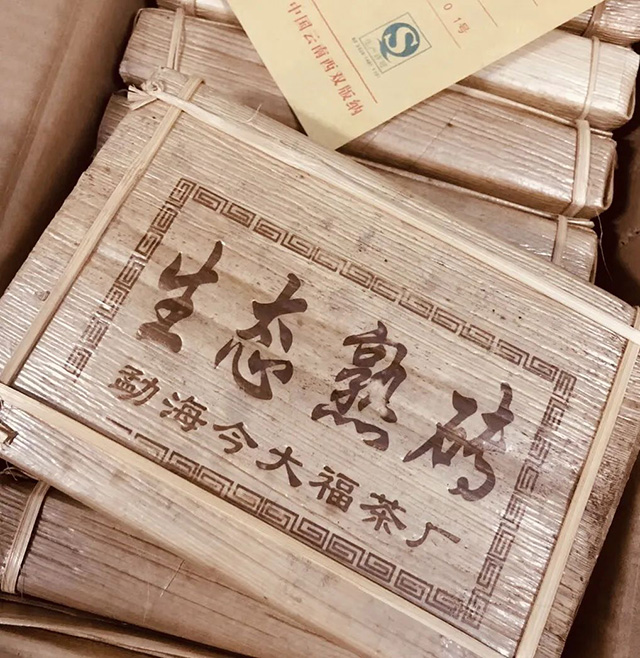 ０１号
中国云南西双版纳
生态熟砖
勐海今大福茶厂